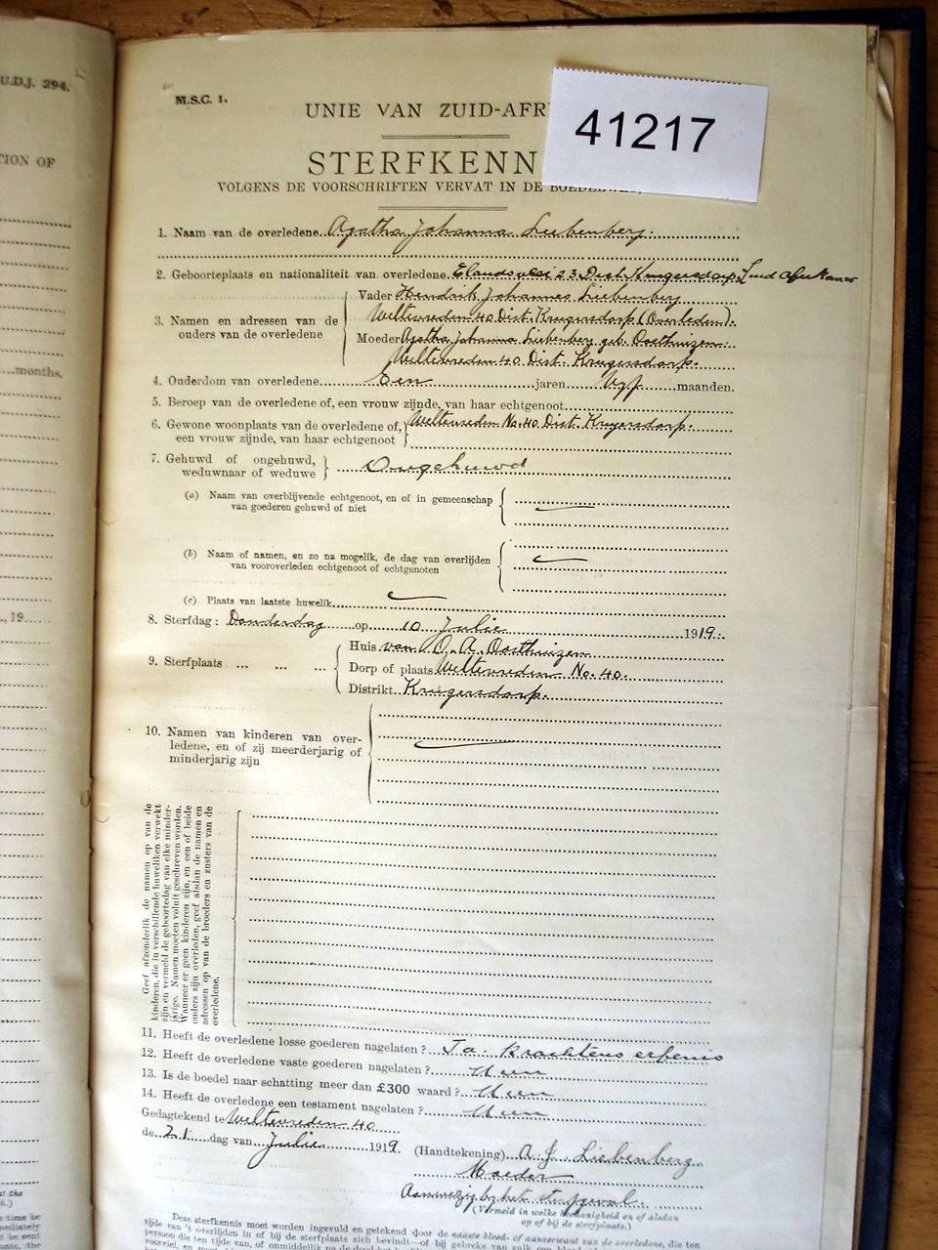 U.D.J. 294.
TION OF
months.
, 19
M.S.C. 1.
41217
UNIE VAN ZUID-AFR
STERFKENN
VOLGENS DE VOORSCHRIFTEN VERVAT IN DE
1. Naam van de overledene Agatha Johanna Liebenberg.
2. Geboorteplaats en nationaliteit van overledene. Elandsvlei 23 Dist. Krugersdorp, Zuid Afrikaner
Vader Hendrik Johannes Liebenberg
3. Namen en adressen van de ouders van de overledene
Weltevreden 40 Dist. Krugersdorp (Overleden).
Moeder Agatha Johanna Liebenberg geb. Oosthuizen.
Weltevreden 40 Dist. Krugersdorp.
4. Ouderdom van overledene Een jaren Vyf maanden.
5. Beroep van de overledene of, een vrouw zijnde, van haar echtgenoot
6. Gewone woonplaats van de overledene of, Weltevreden No. 40 Dist. Krugersdorp.
een vrouw zijnde, van haar echtgenoot
7. Gehuwd of ongehuwd, weduwnaar of weduwe Ongehuwd
(a) Naam van overblijvende echtgenoot, en of in gemeenschap
van goederen gehuwd of niet
(b) Naam of namen, en zo na mogelik, de dag van overlijden
van vooroverleden echtgenoot of echtgenoten
(c) Plaats van laatste huwelik
8. Sterfdag: Donderdag op 10 Julie 1919.
Huis van O. A. Oosthuizen
9. Sterfplaats ... ... ... Dorp of plaats Weltevreden No. 40.
Distrikt Krugersdorp.
10. Namen van kinderen van over-
ledene, en of zij meerderjarig of
minderjarig zijn
Geef afzonderlik de namen op van de
kinderen, die in verschillende huweliken verwekt
zijn en vermeld de geboortedag van elke minder-
jarige. Namen moeten voluit geschreven worden.
Wanneer er geen kinderen zijn, en een of beide
ouders zijn overleden, geef alsdan de namen en
adressen op van de broeders en zusters van de
overledene.
11. Heeft de overledene losse goederen nagelaten? Ja. Krachtens erfenis
12. Heeft de overledene vaste goederen nagelaten? Neen
13. Is de boedel naar schatting meer dan £300 waard? Neen
14. Heeft de overledene een testament nagelaten? Neen
Gedagtekend te Weltevreden 40
de 21 dag van Julie 1919. (Handtekening) A. J. Liebenberg
Moeder
Aanwezig by het sterfgeval.
(Vermeld in welke hoedanigheid en of alsdan
op of bij de sterfplaats.)
Deze sterfkennis moet worden ingevuld en getekend door de naaste bloed- of aanverwant van de overledene, die ten
tijde van 's overlijden in of bij de sterfplaats zich bevindt—of bij gebreke van